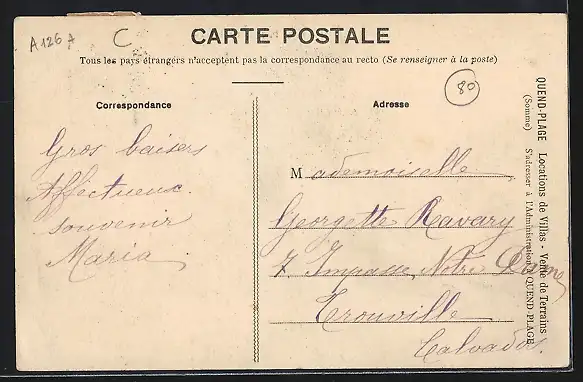 A126A
C
CARTE POSTALE
Tous les pays étrangers n'acceptent pas la correspondance au recto (Se renseigner à la poste)
80
Correspondance
Gros baisers
Affectueux
souvenir
Maria
Adresse
Mademoiselle
Georgette Ravary
7. Impasse Notre Dame
Trouville
Calvados.
QUEND-PLAGE Locations de Villas - Vente de Terrains
(Somme) S'adresser à l'Administration QUEND-PLAGE